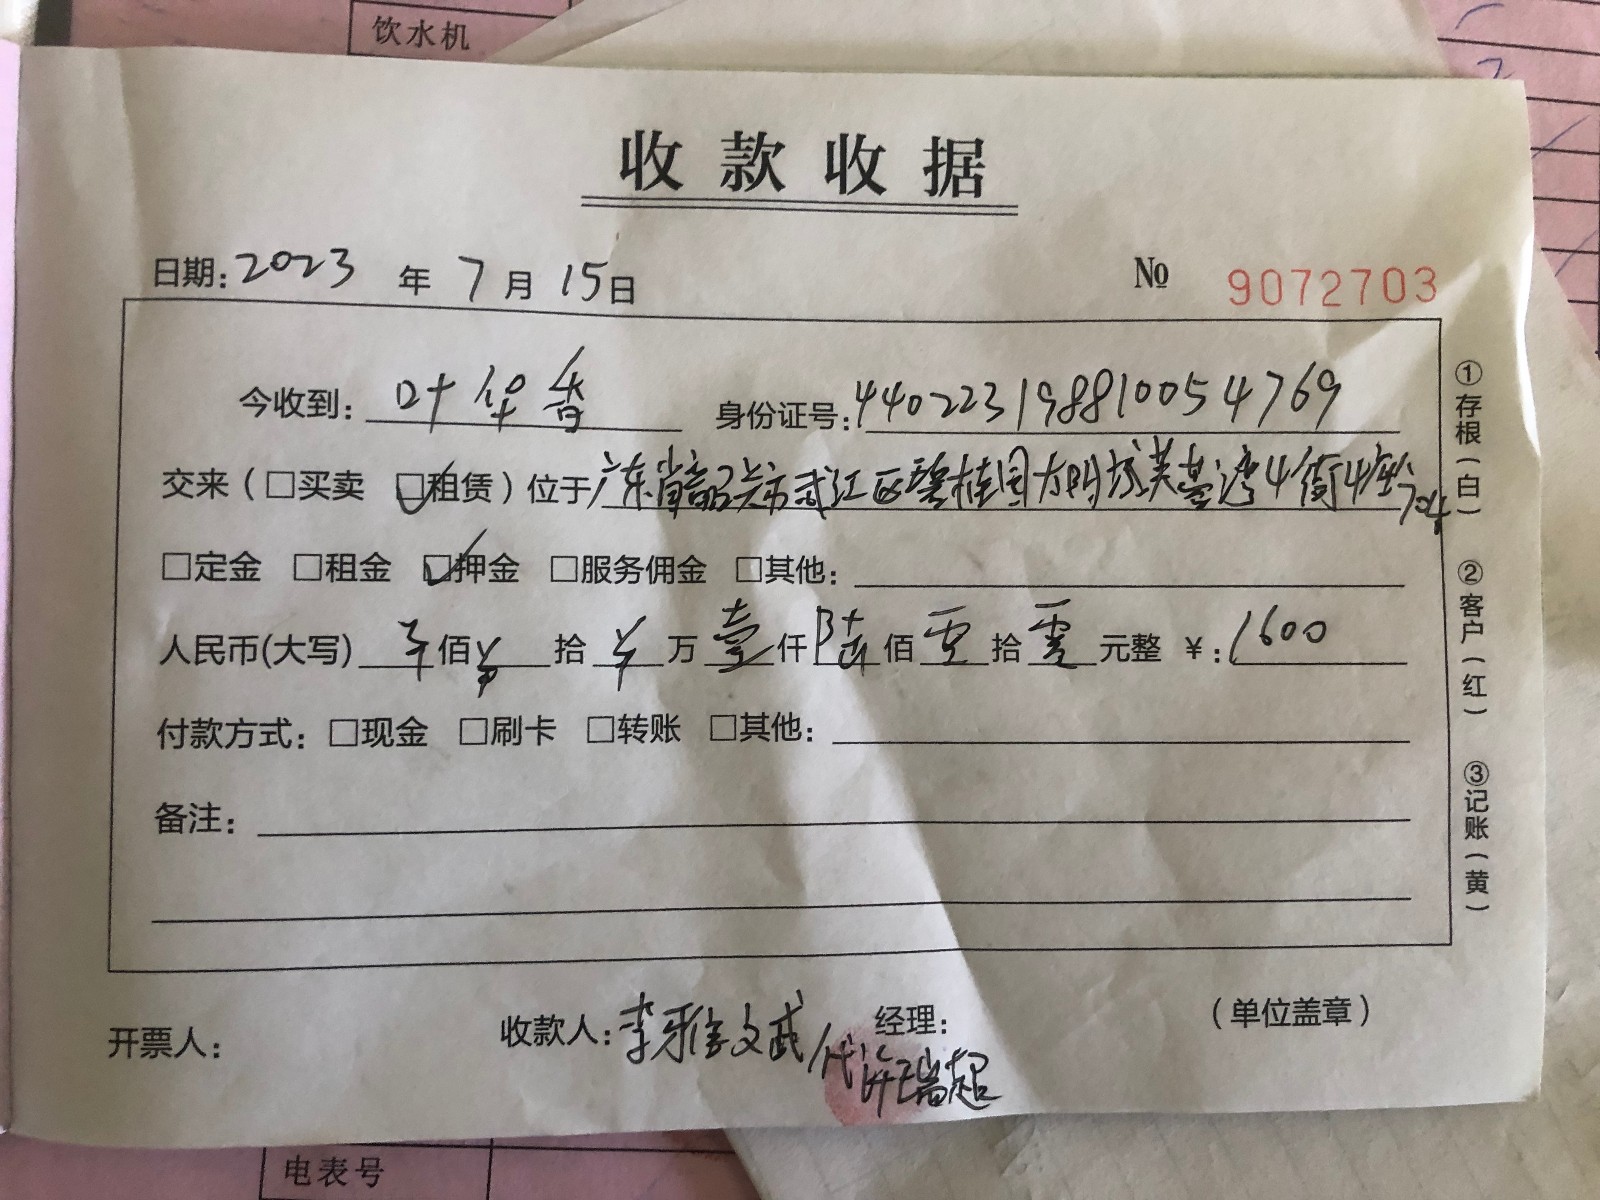 饮水机
收款收据
日期:2023 年 7月 15日 No 9072703
今收到: 叶华香 身份证号:440223198810054769
交来（□买卖 ☑租赁）位于广东省韶关市武江区碧桂园太阳城芙蓉湾4街4座704
□定金 □租金 ☑押金 □服务佣金 □其他:
人民币(大写) 佰 ¥ 拾 万 壹仟陆佰零拾零元整 ¥:1600
付款方式: □现金 □刷卡 □转账 □其他:
备注:
开票人: 收款人:李雅 文武 代许瑞超 经理: （单位盖章）
①存根（白）
②客户（红）
③记账（黄）
电表号